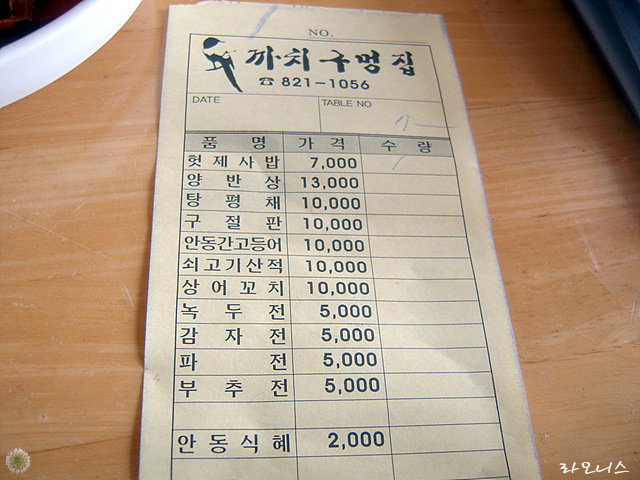 NO.
까치구멍집
☎ 821-1056
DATE TABLE NO
품 명 가 격 수 량
헛제사밥 7,000
양반상 13,000
탕평채 10,000
구절판 10,000
안동간고등어 10,000
쇠고기산적 10,000
상어꼬치 10,000
녹두전 5,000
감자전 5,000
파전 5,000
부추전 5,000
안동식혜 2,000
라오니스